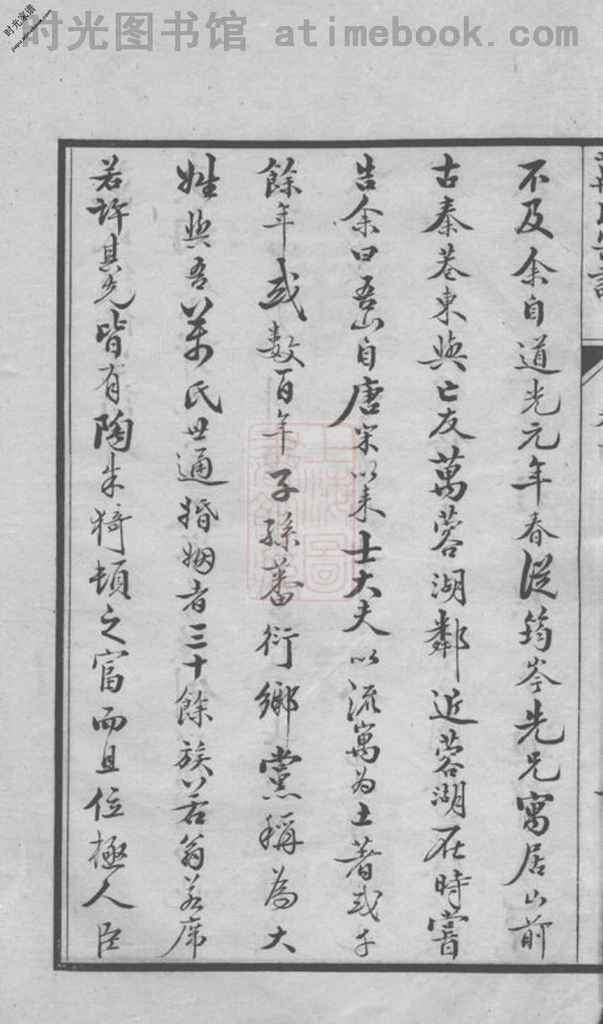 时光图书馆 atimebook.com
时光家谱
不及余自道光元年春從筠岑先兄寓居山前
古秦巷東與亡友萬蓉湖鄰近蓉湖在時嘗
告余曰吾山自唐宋以来士大夫以流寓为土著或千
餘年或數百年子孫蕃衍鄉黨稱為大
姓與吾萬氏世通婚姻者三十餘族若翁若席
若許其先皆有陶朱猗頓之富而且位極人臣